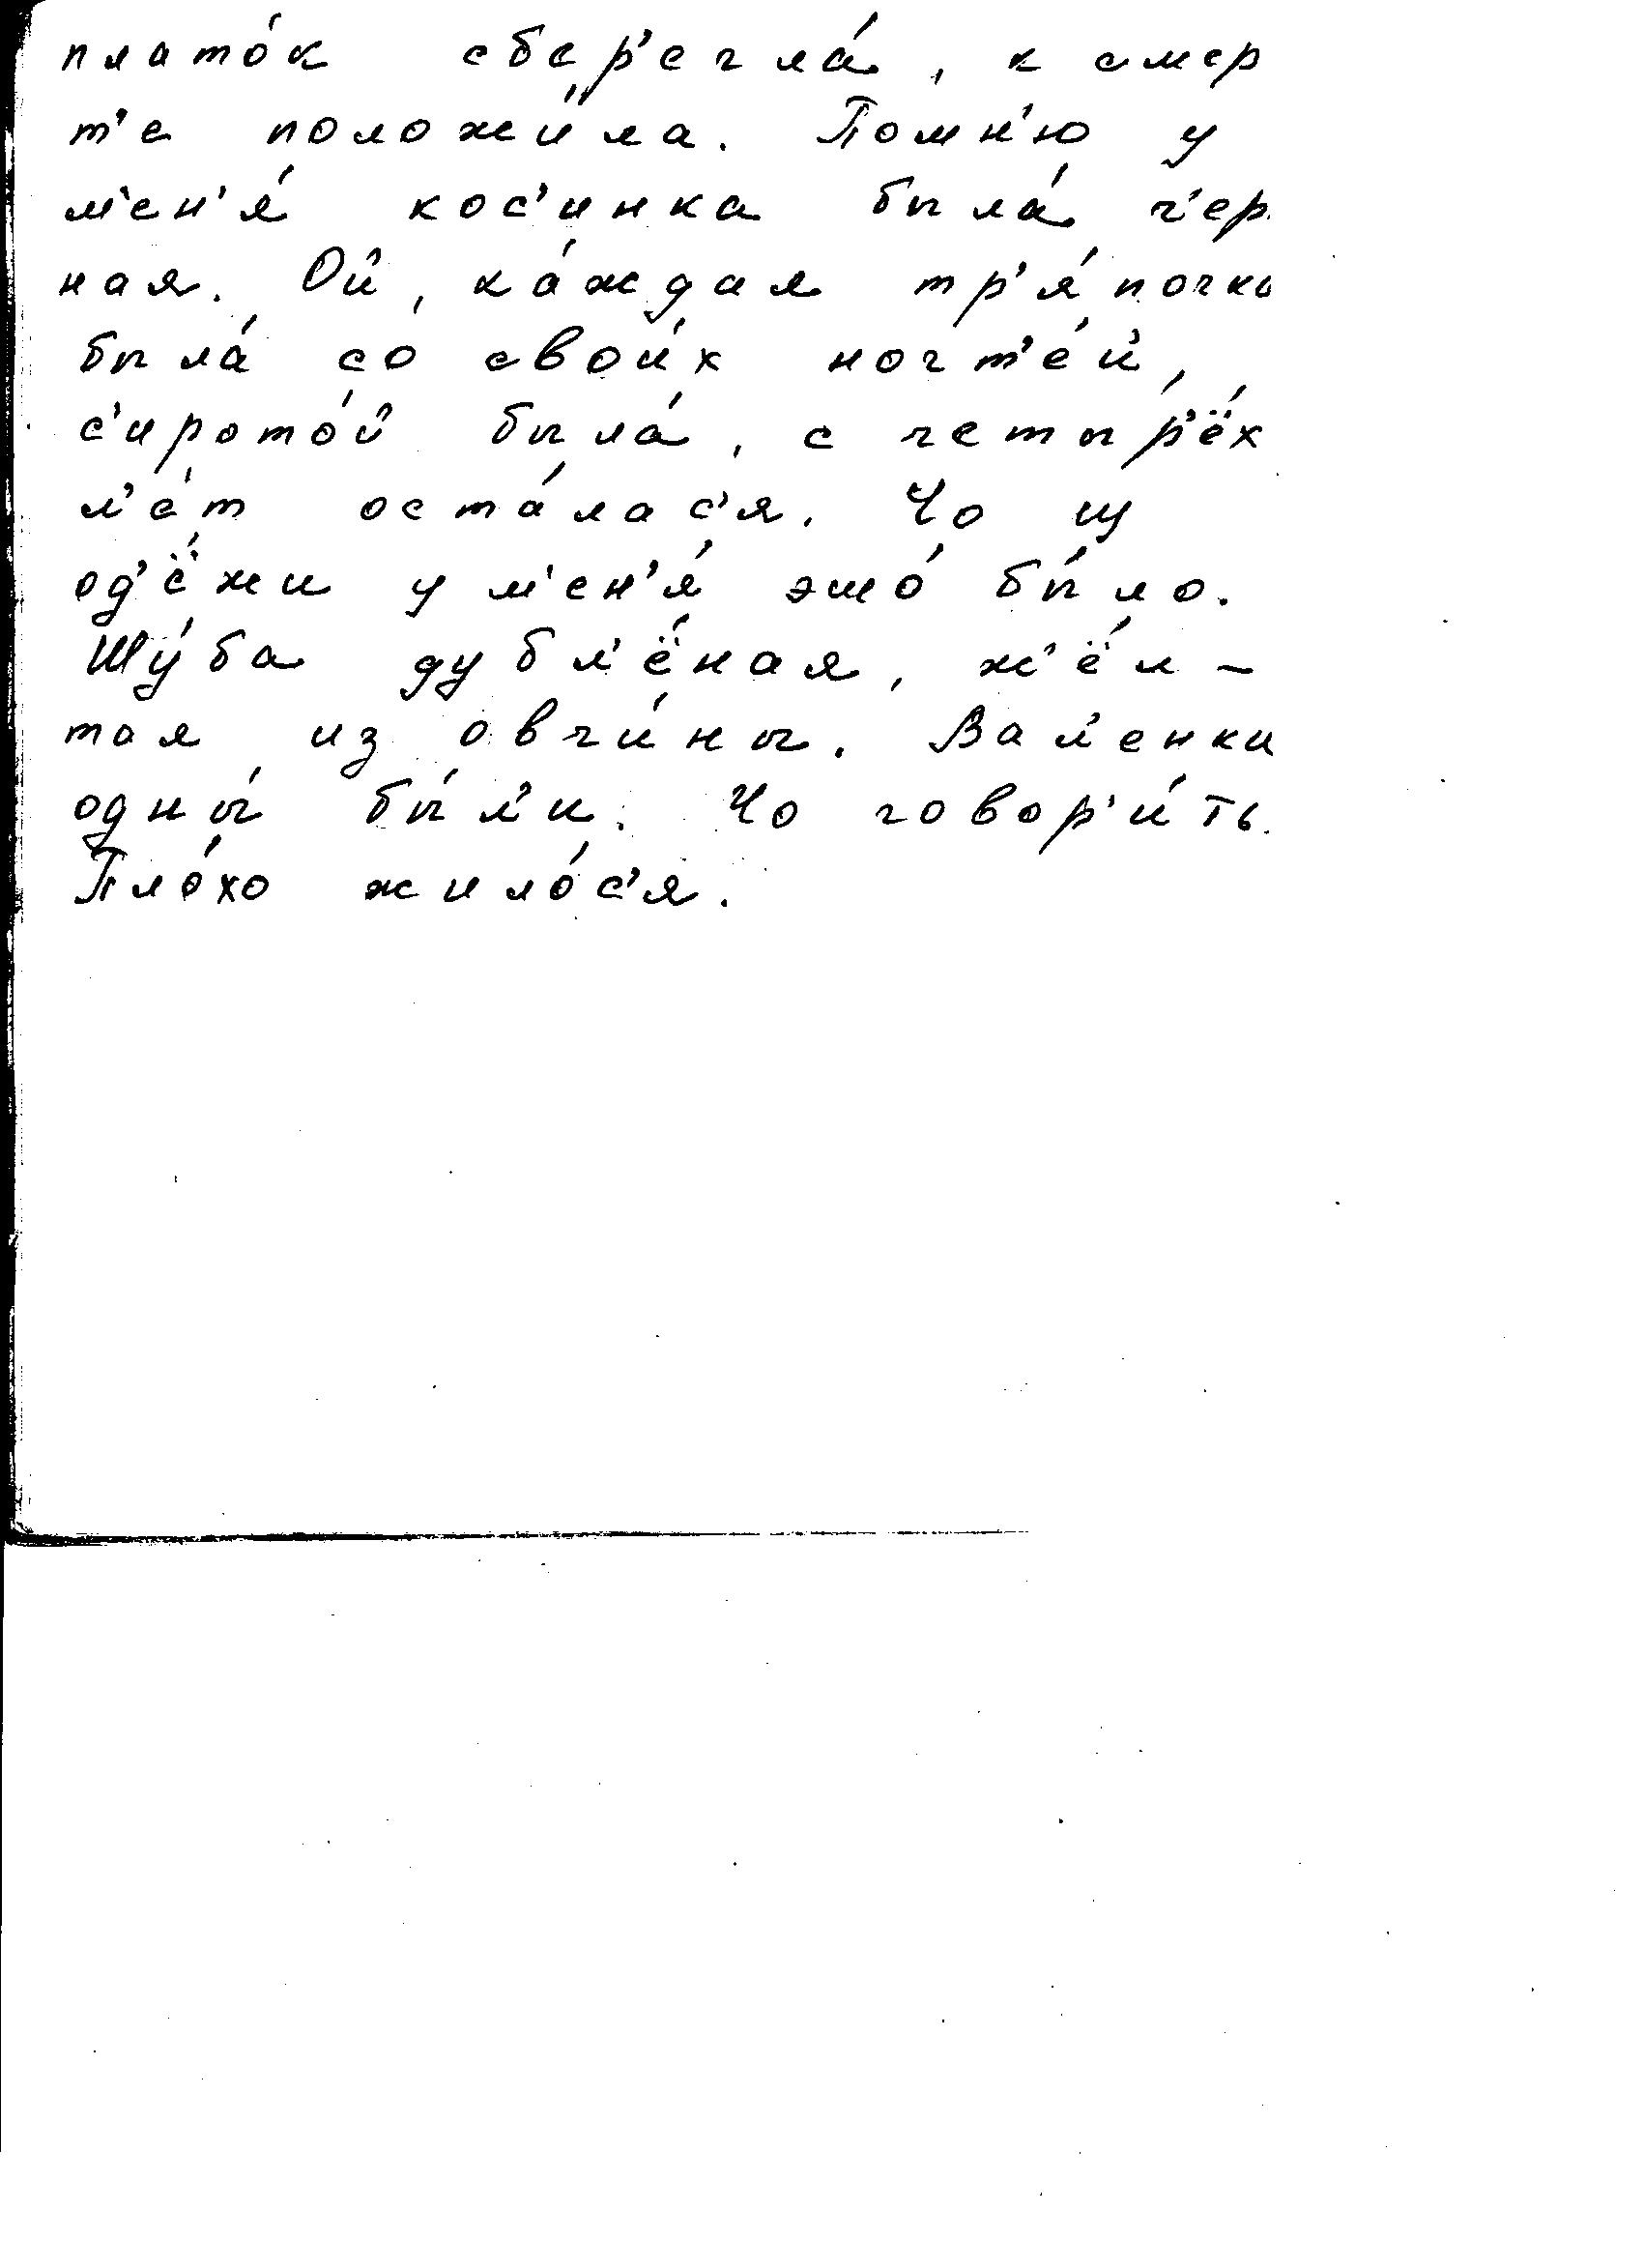 плато́к сбер'егла́, к смер
т'е положи́ла. Помн'ю у
м'ен'я́ кос'инка была́ ч'ер
ная. Ой, ка́ждая тр'я́почка
была́ со свои́х ногт'е́й,
с'ирото́й была́, с четыр'ёх
л'е́т оста́лас'я. Чо щ
од'ёжи у м'ен'я́ эшо́ бы́ло.
Шу́ба дубл'ёная, ж'ёл-
тая из овчи́ны. Вал'енки
одны́ бы́л'и. Чо говор'и́ть.
Пло́хо жило́с'я.